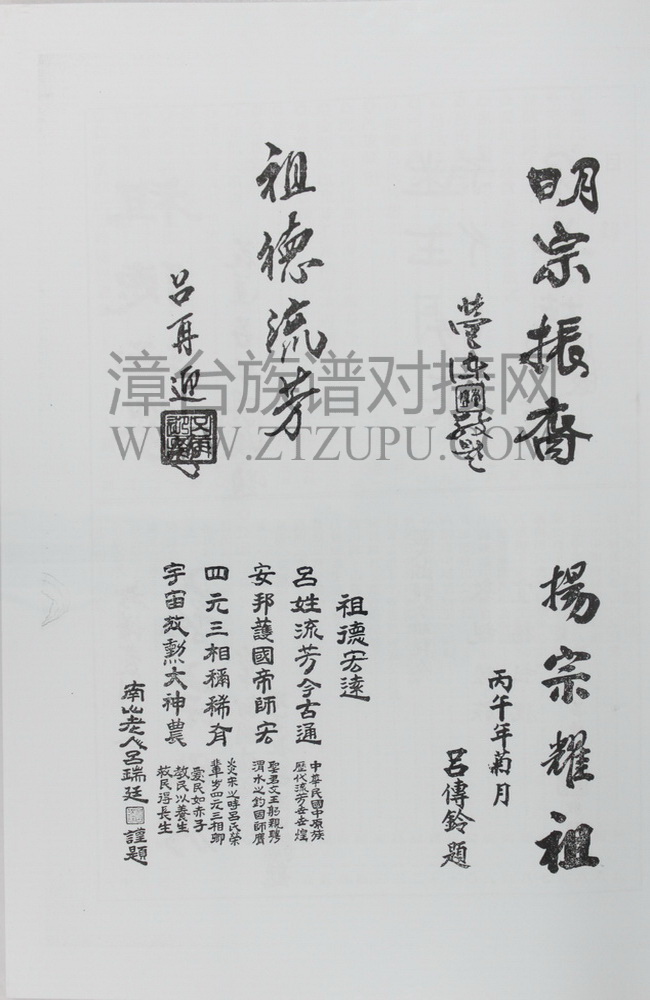 明宗振裔
揚宗耀祖
丙午年菊月
呂傳鈴題
祖德流芳
呂再迎
祖德宏遠
呂姓流芳今古通
中華民國中原族
歷代流芳
安邦護國帝師宏
聖君文王躬親聘
渭水之釣國師膺
四元三相稱稀有
炎宋之時呂氏榮
四元三相
宇宙放勳大神農
愛民如赤子
教民以養生
救民得長生
南山老人呂瑞廷謹題
漳台族谱对接网
WWW.ZTZUPU.COM